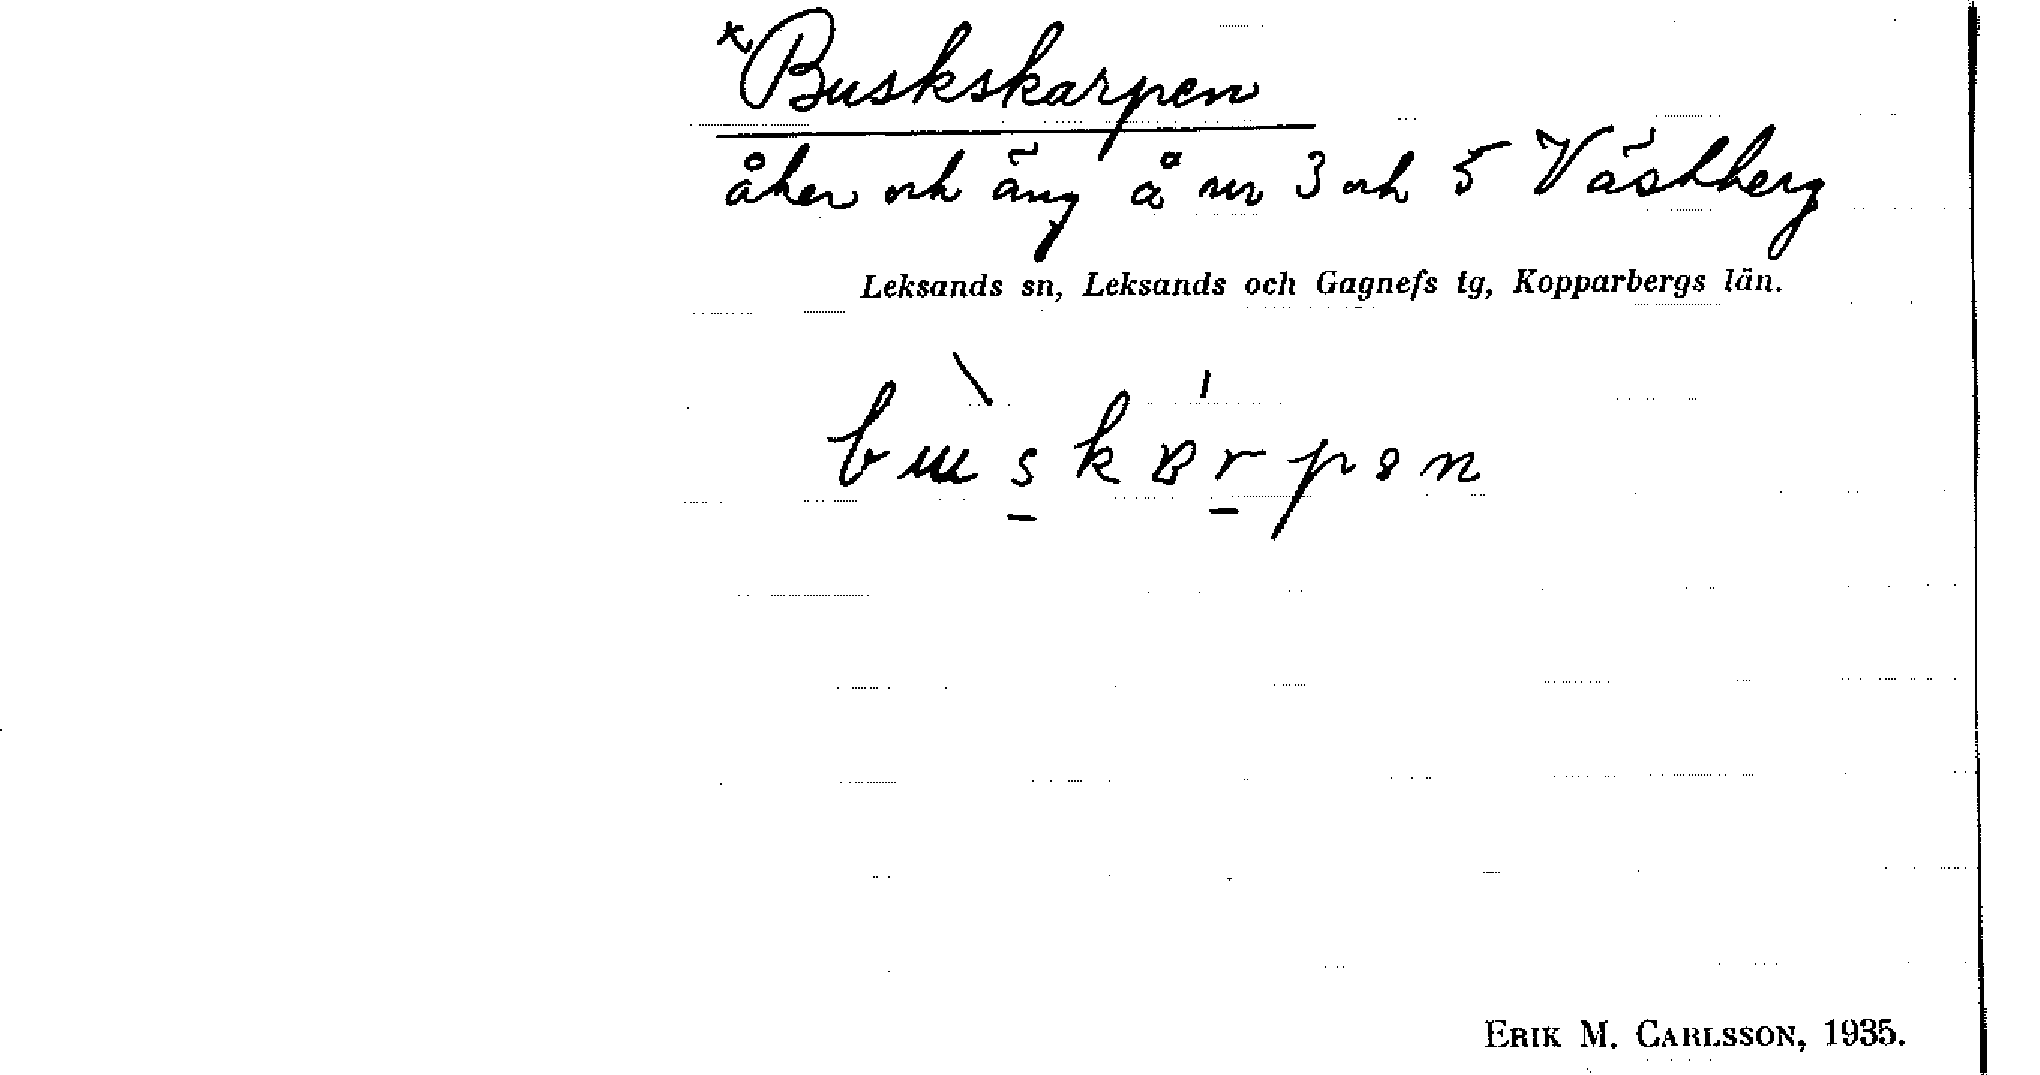 ×Buskskarpen
åker och äng å nr 3 och 5 Västberg
Leksands sn, Leksands och Gagnefs tg, Kopparbergs län.
ERIK M. CARLSSON, 1935.